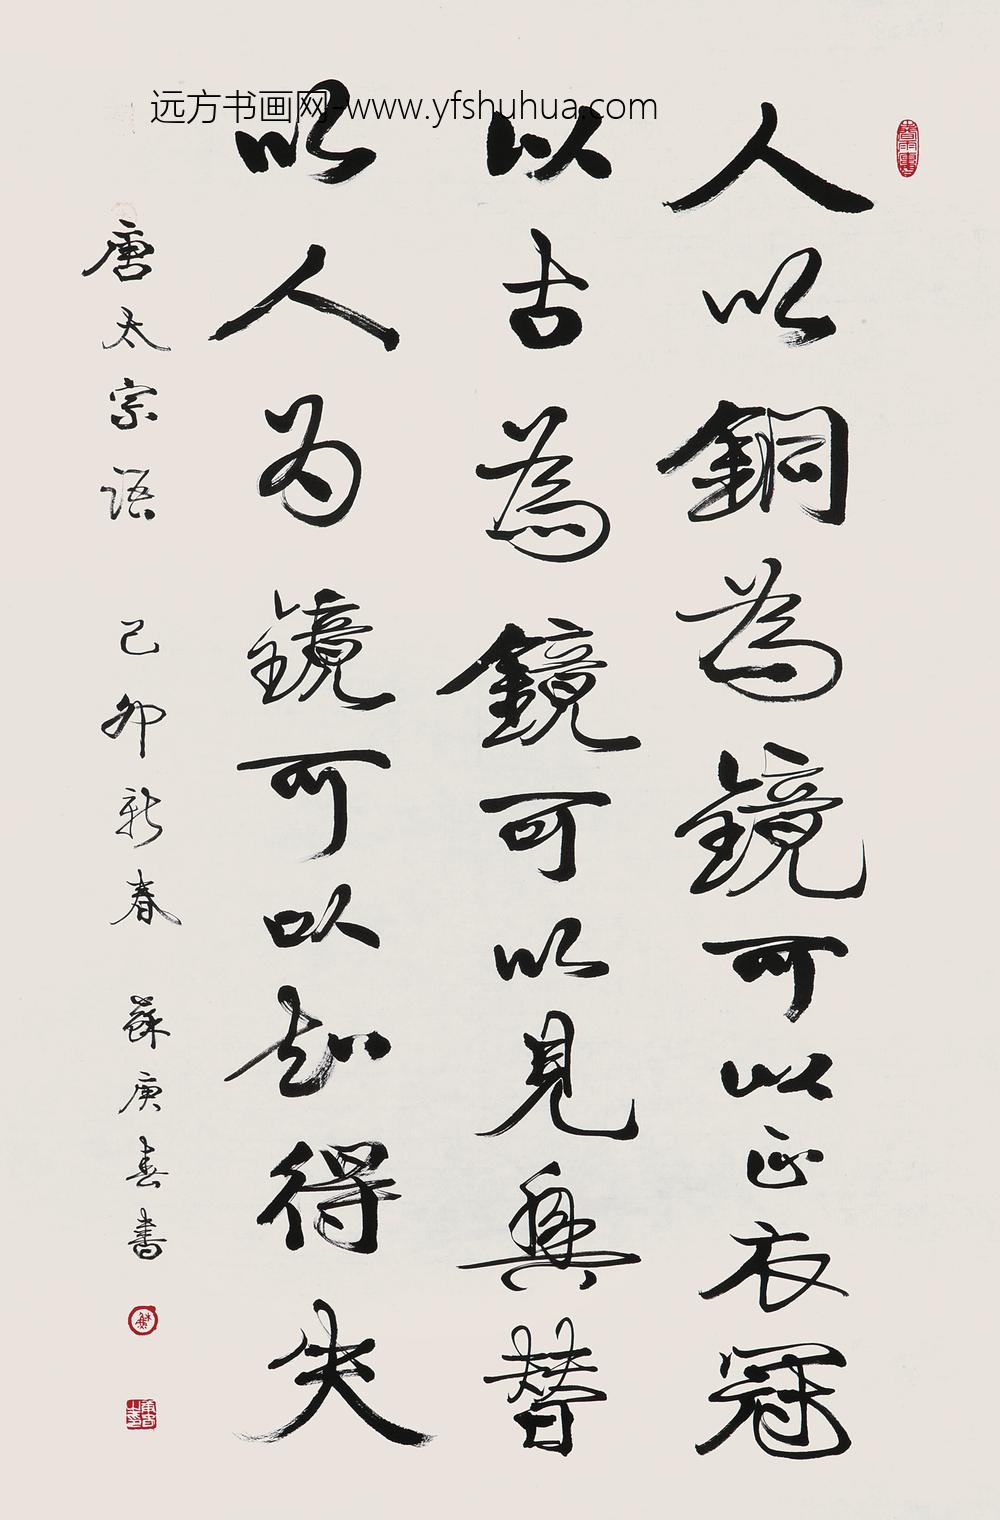 人以銅為鏡可以正衣冠
以古為鏡可以見興替
以人为鏡可以知得失
唐太宗语 己卯新春 蘇庚春書
远方书画网-www.yfshuhua.com